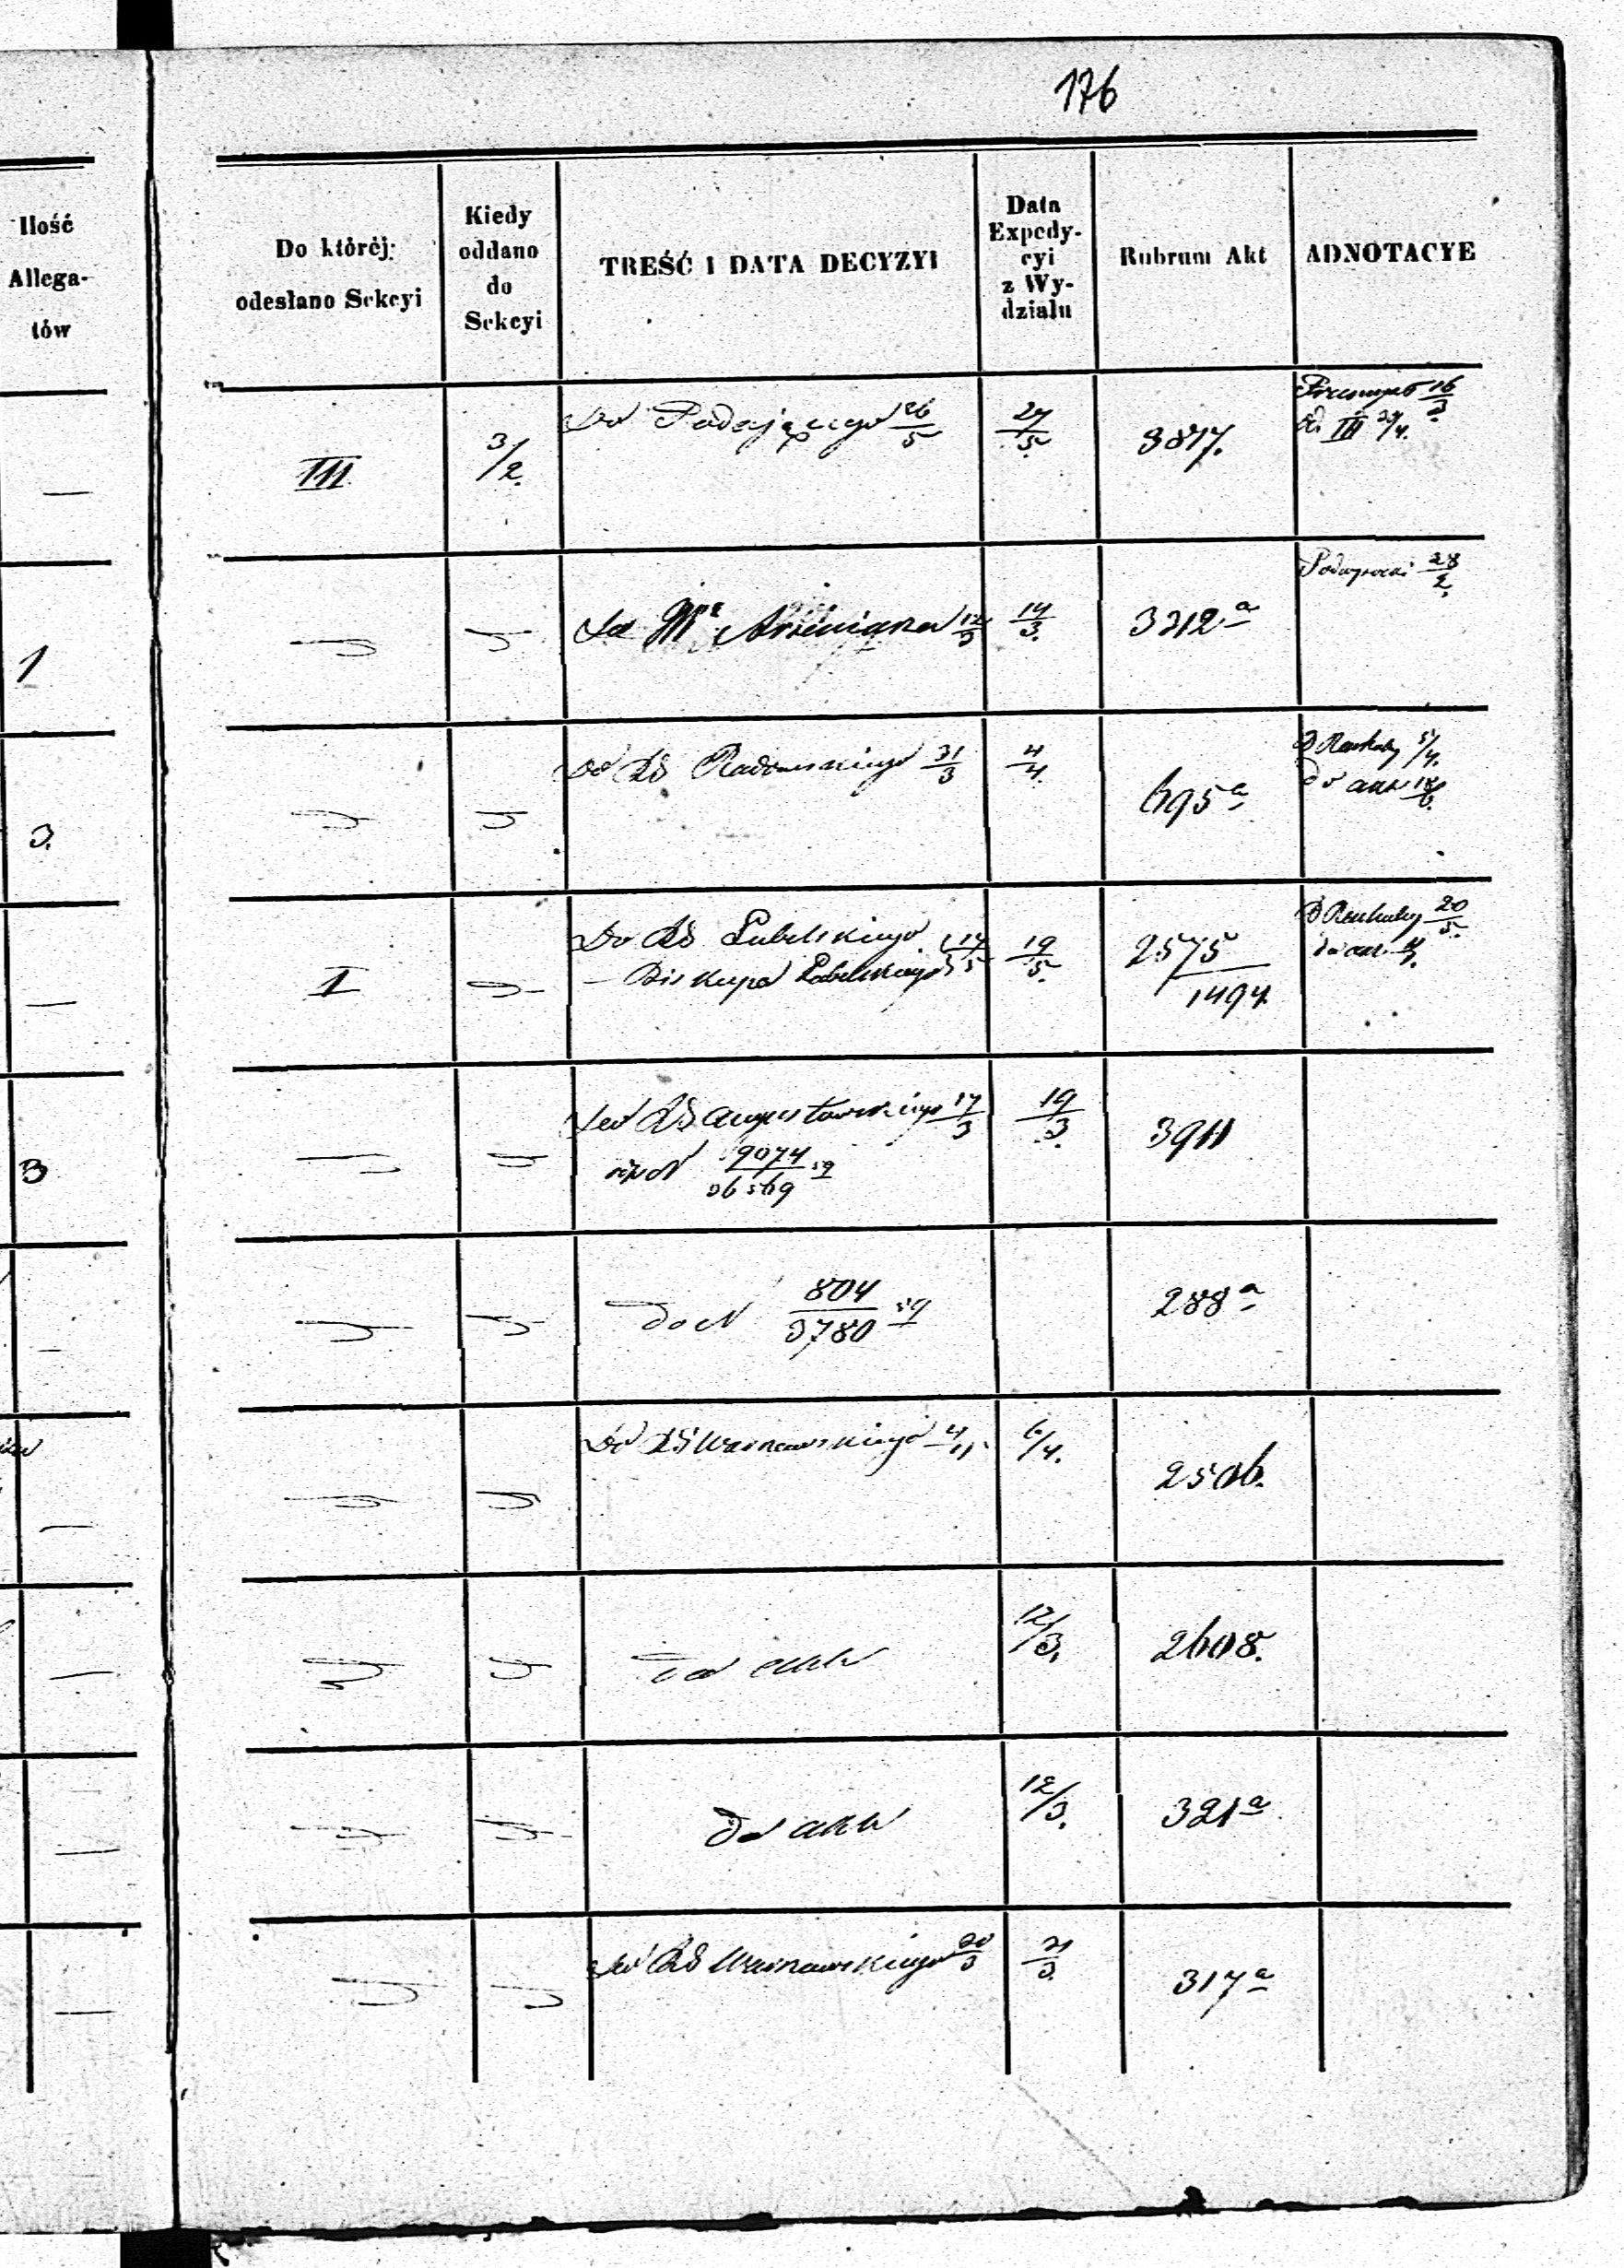 176
Ilość
Allega-
tów
Do którėj
odesłano Sekcyi
Kiedy
oddano
do
Sekcyi
TREŚĆ I DATA DECYZYI
Data
Expedy-
cyi
z Wy-
działu
Rubrum Akt
ADNOTACYE
—
III
3/2.
Do Podającego 26/5
27/5.
3877.
16/3
III 29/4.
1
14/3.
3212 a
28/2.
3.
Do RG Radomskiego 31/3
4/4.
695 a
do akt
—
I
Do RG Lubelskiego
— Biskupa Lubelskiego 14/5
19/5.
2575/1494
20/5.
do akt
3
Do RG Augustowskiego 17/3
9074/36569 59
19/3.
3911
—
do N 804/3780 59
288 a
—
Do RG Warszawskiego
6/4.
2506.
—
do akt
12/3.
2608.
—
do akt
12/3.
321 a
—
Do RG Warszawskiego 20/3
21/3.
317 a